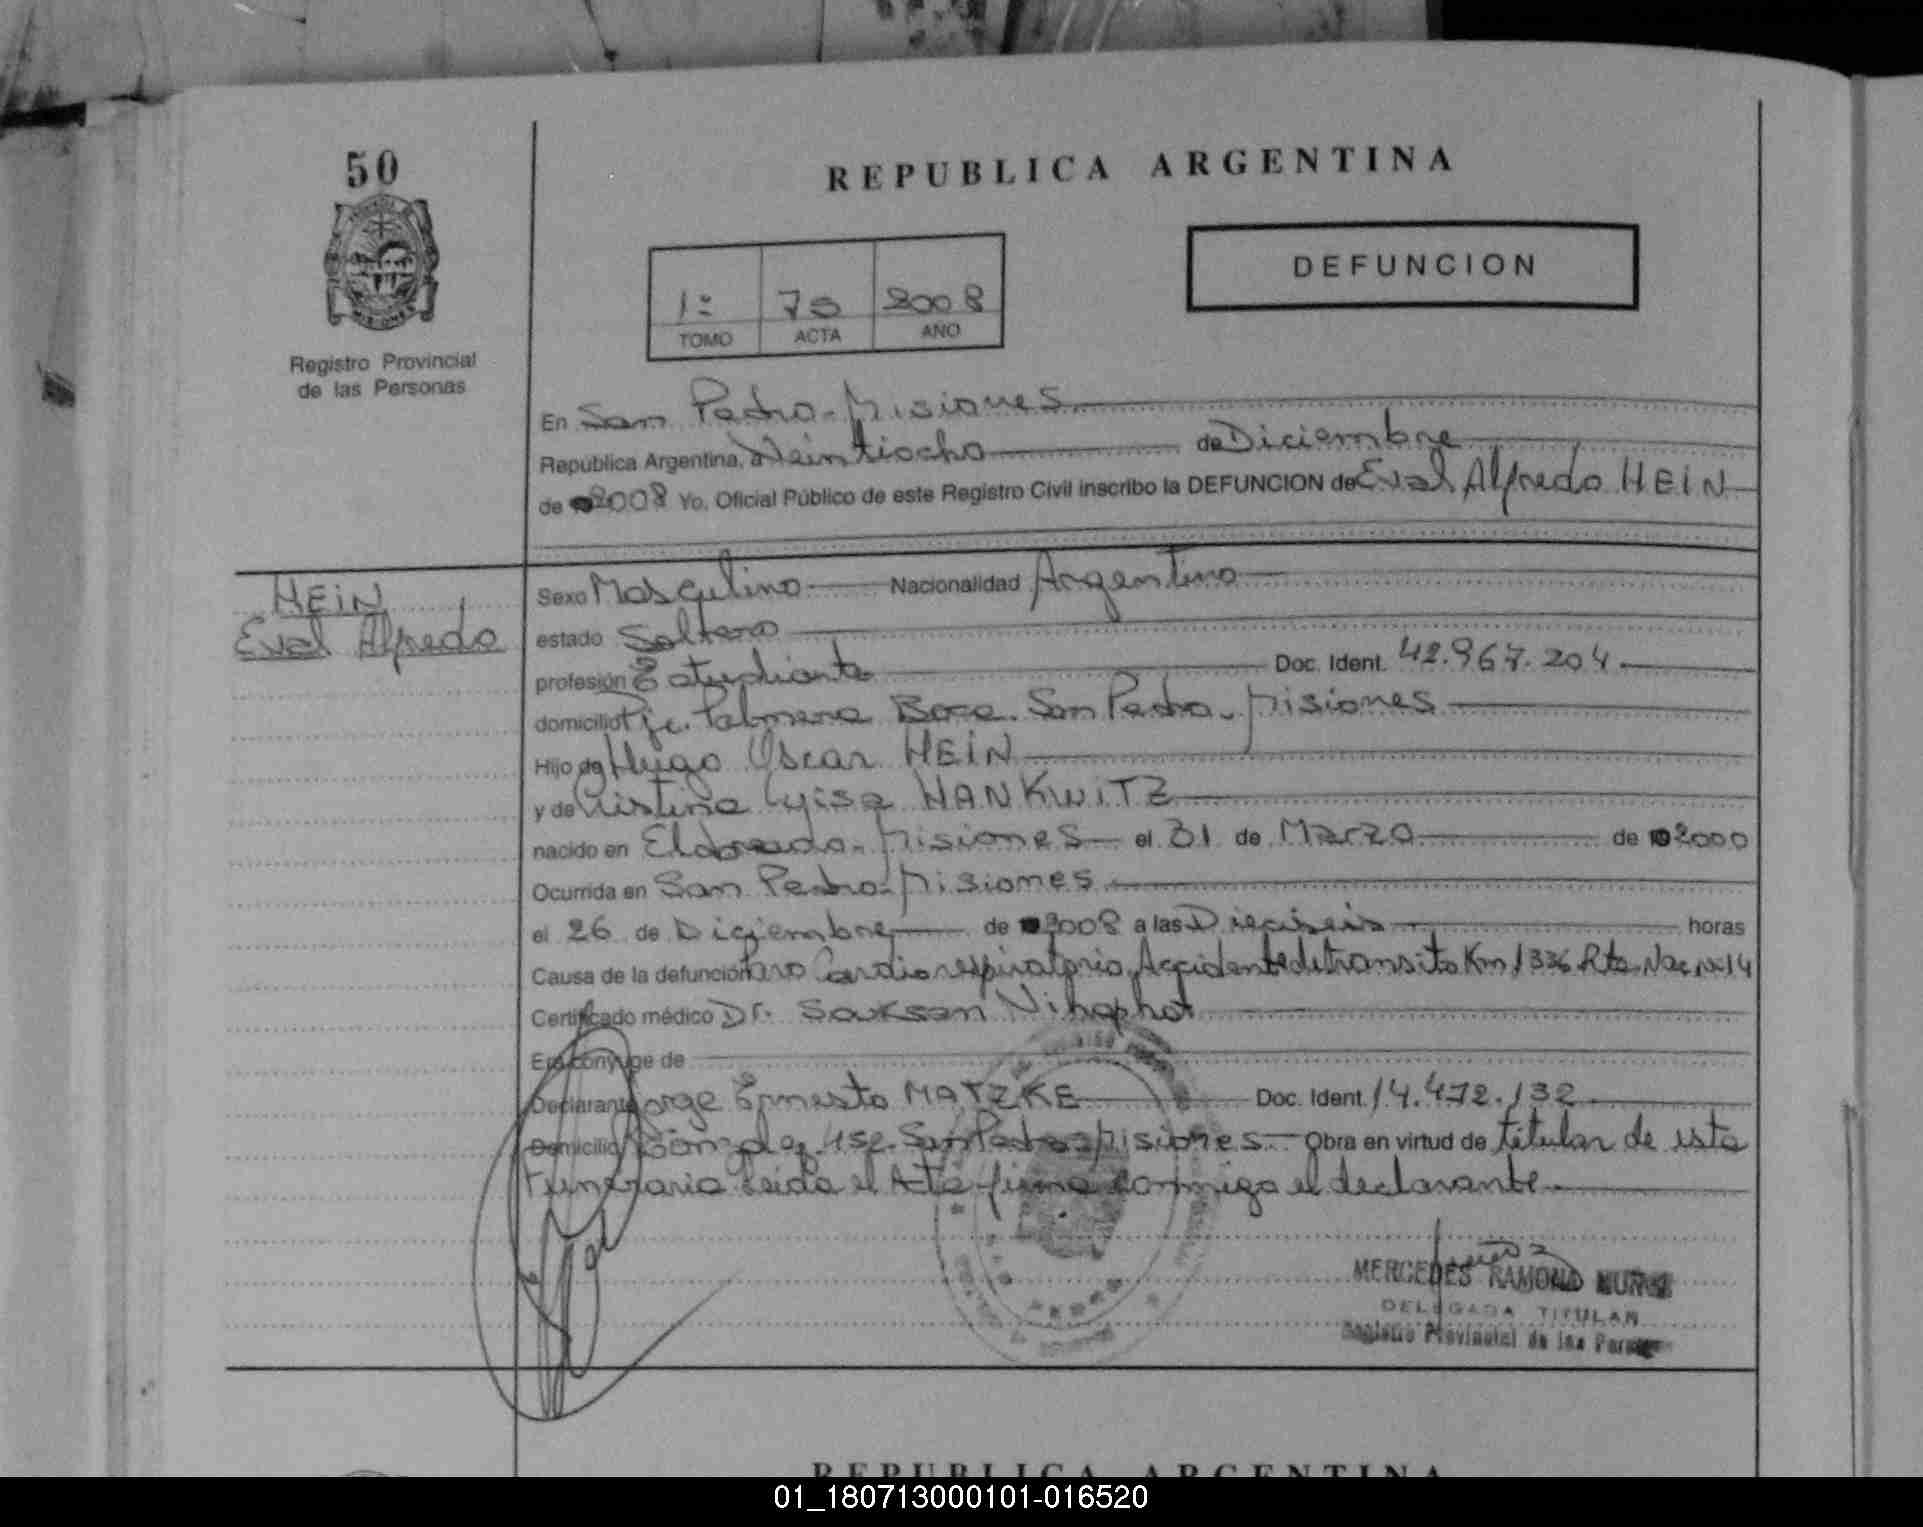 50
REPUBLICA ARGENTINA
DEFUNCION
1º 75 2008
TOMO ACTA AÑO
Registro Provincial
de las Personas
En San Pedro - Misiones
República Argentina, a Veintiocho de Diciembre
de 2008 Yo, Oficial Público de este Registro Civil inscribo la DEFUNCION de Eval Alfredo HEIN
HEIN
Eval Alfredo
Sexo Masculino Nacionalidad Argentino
estado Soltero
profesión Estudiante Doc. Ident. 42.967.204
domicilio Pje. Palmera Boca. San Pedro - Misiones
Hijo de Hugo Oscar HEIN
y de Cristina Luisa HANKWITZ
nacido en Eldorado - Misiones el 31 de Marzo de 2000
Ocurrida en San Pedro - Misiones
el 26 de Diciembre de 2008 a las Dieciseis horas
Causa de la defunción Paro Cardiorespiratorio, Accidente de transito Km 1336 Rta. Nac. Nº 14
Certificado médico Dr. Sawksan
Era cónyuge de
Declarante Jorge Ernesto MATZKE Doc. Ident. 14.472.132
Domicilio San Pedro - Misiones Obra en virtud de titular de esta
Funeraria Leida el Acta firma conmigo el declarante
MERCEDES RAMONA MUÑOZ
DELEGADA TITULAR
Registro Provincial de las Personas
REPUBLICA ARGENTINA
01_180713000101-016520